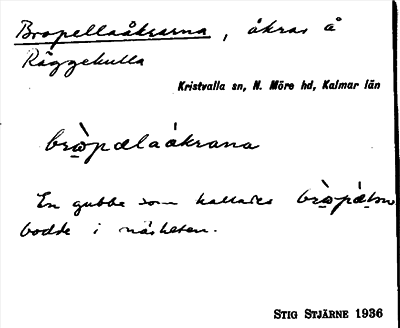 Bropellaåkrarna, åkrar å
Räggekulla
Kristvalla sn, N. Möre hd, Kalmar län
brò̲pælaákrana
En gubbe som kallades
bodde i närheten.
STIG STJÄRNE 1936